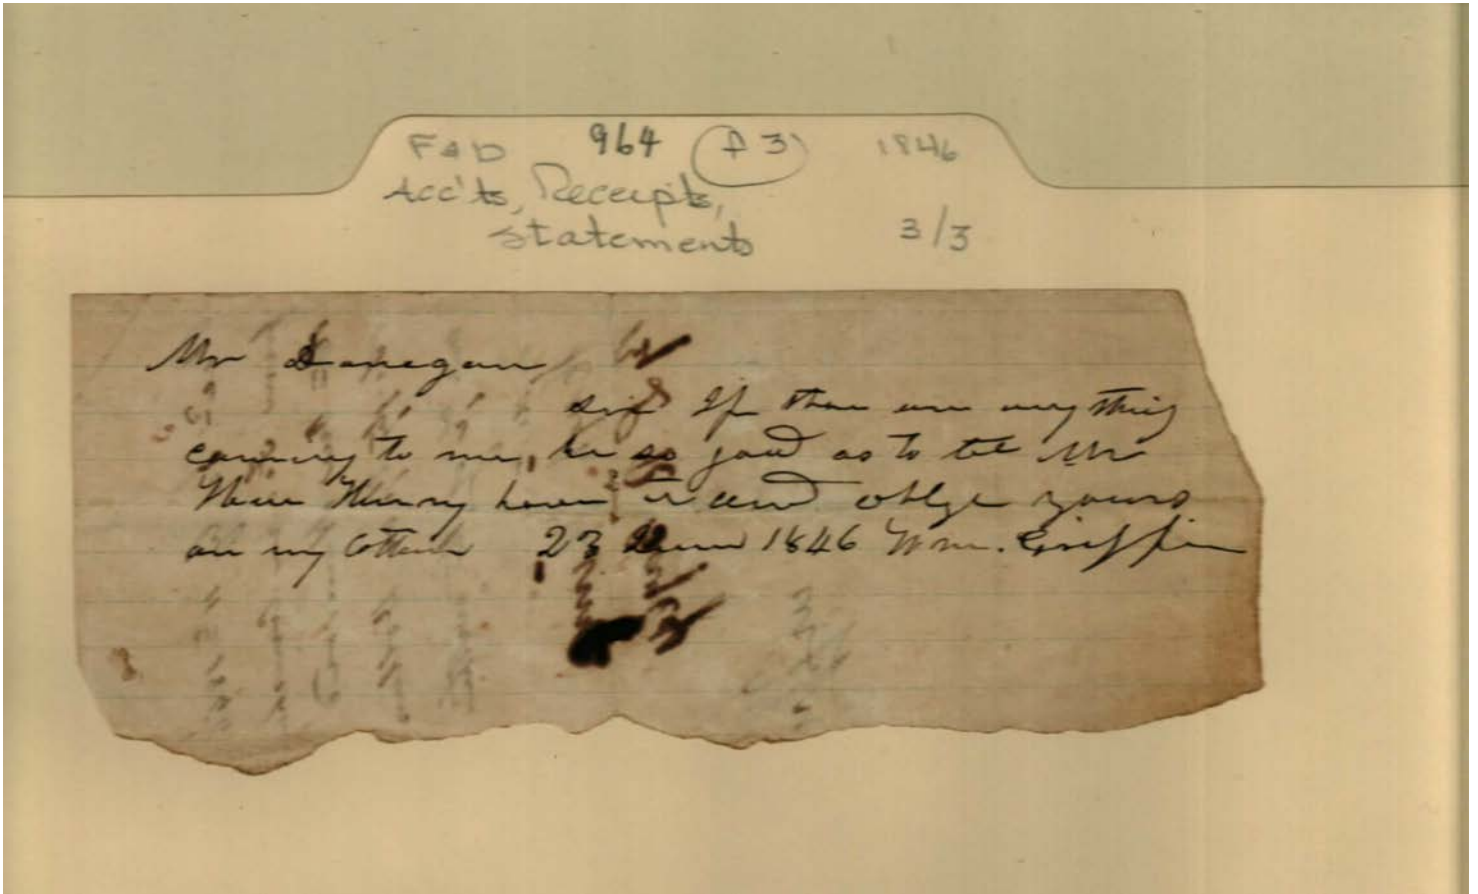 F&D 964 (P 3) 1846
Acc'ts, Receipts,
Statements 3/3
Mr Donegan
Sir If there are any thing
coming to me, be so good as to let Mr
Henry have it and oblge yours
on my Cotton 23 1846 Wm. Griffin